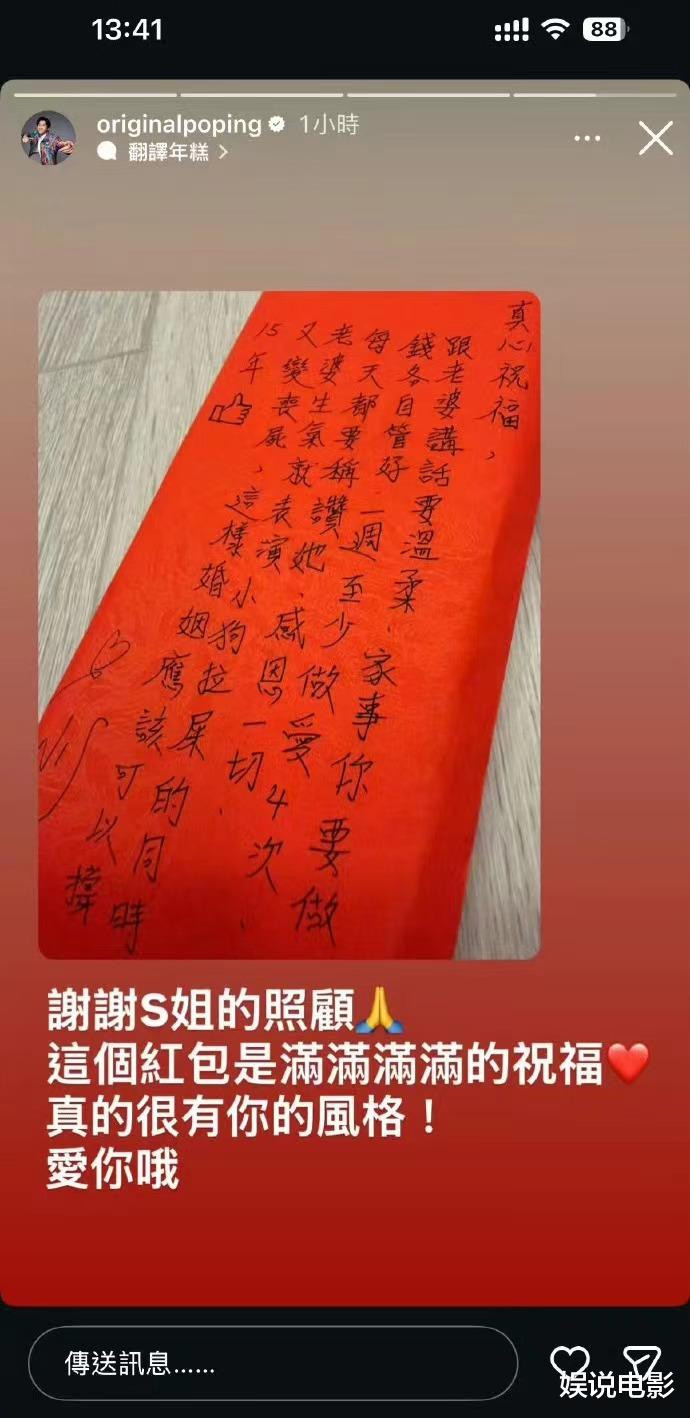 13:41
88
originalpoping 1小時
翻譯年糕
真心祝福，
跟老婆講話要溫柔、家事你要做
錢各自管好、一週至少做愛4次、
每天都要稱讚她、感恩一切、
老婆生氣就表演小狗拉屎的同時
又變喪屍，這樣婚姻應該可以撐
15年
謝謝S姐的照顧🙏
這個紅包是滿滿滿滿的祝福❤️
真的很有你的風格！
愛你哦
傳送訊息......
娱说电影